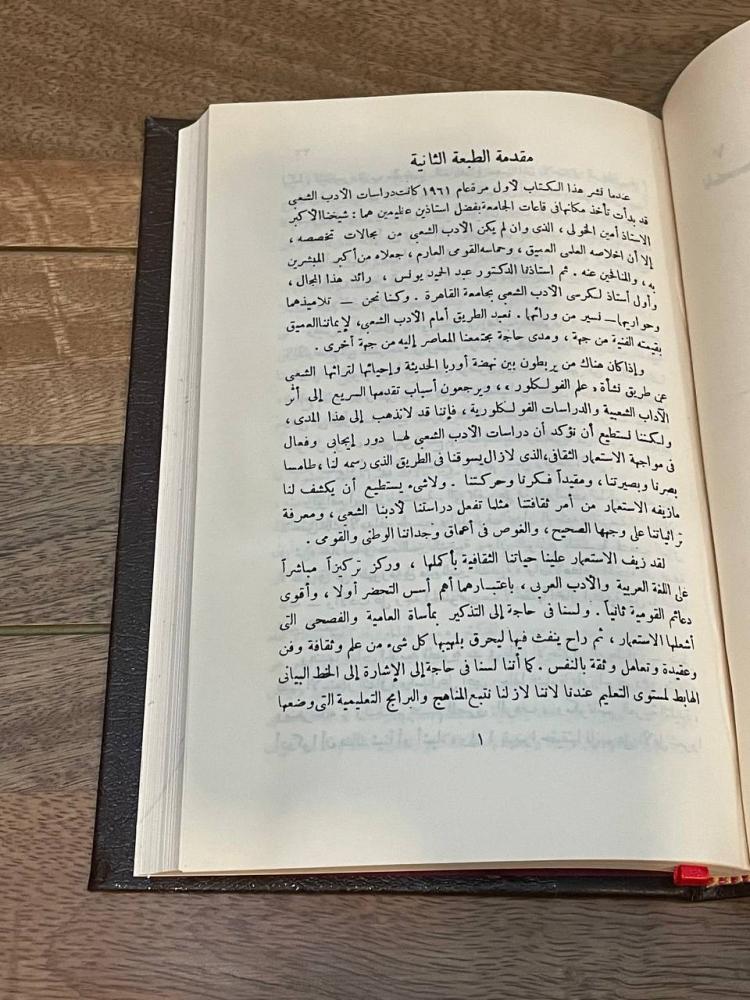 مقدمة الطبعة الثانية
عندما نشر هذا الكتاب لأول مرة عام ١٩٦١ كانت دراسات الأدب الشعبى
قد بدأت تأخذ مكانها فى قاعات الجامعة بفضل استاذين عظيمين هما : شيخنا الأكبر
الاستاذ أمين الخولى ، الذى وان لم يكن الأدب الشعبى من مجالات تخصصه ،
إلا أن اخلاصه العلمى العميق ، وحماسه القومى العارم ، جعلاه من أكبر المبشرين
به ، والمنافحين عنه . ثم استاذنا الدكتور عبد الحميد يونس ، رائد هذا المجال ،
وأول أستاذ لكرسى الأدب الشعبى بجامعة القاهرة . وكنا نحن — تلاميذهما
وحواريهما — نسير من ورائهما . نعبد الطريق أمام الأدب الشعبى ، لإيماننا العميق
بقيمته الفنية من جهة ، ومدى حاجة مجتمعنا المعاصر إليه من جهة أخرى .
وإذا كان هناك من يربطون بين نهضة أوربا الحديثة وإحيائها لتراثها الشعبى
عن طريق نشأة « علم الفولكلور » ، ويرجعون أسباب تقدمها السريع إلى أثر
الآداب الشعبية والدراسات الفولكلورية ، فإننا قد لا نذهب إلى هذا المدى ،
ولكننا نستطيع أن نؤكد أن دراسات الأدب الشعبى لها دور إيجابى وفعال
فى مواجهة الاستعمار الثقافى ، الذى لا زال يسوقنا فى الطريق الذى رسمه لنا ، طامسا
بصرنا وبصيرتنا ، ومقيداً فكرنا وحركتنا . ولا شىء يستطيع أن يكشف لنا
ما زيفه الاستعمار من أمر ثقافتنا مثلما تفعل دراستنا لأدبنا الشعبى ، ومعرفة
تراثياتنا على وجهها الصحيح ، والغوص فى أعماق وجداننا الوطنى والقومى .
لقد زيف الاستعمار علينا حياتنا الثقافية بأكملها ، وركز تركيزاً مباشراً
على اللغة العربية والأدب العربى ، باعتبارهما أهم أسس التحضر أولا ، وأقوى
دعائم القومية ثانياً . ولسنا فى حاجة إلى التذكير بمأساة العامية والفصحى التى
أشعلها الاستعمار ، ثم راح ينفث فيها ليحرق بلهيبها كل شىء من علم وثقافة وفن
وعقيدة وتعامل وثقة بالنفس . كما أننا لسنا فى حاجة إلى الإشارة إلى الخط البيانى
الهابط لمستوى التعليم عندنا لاننا لازلنا نتبع المناهج والبرامج التعليمية التى وضعها
١